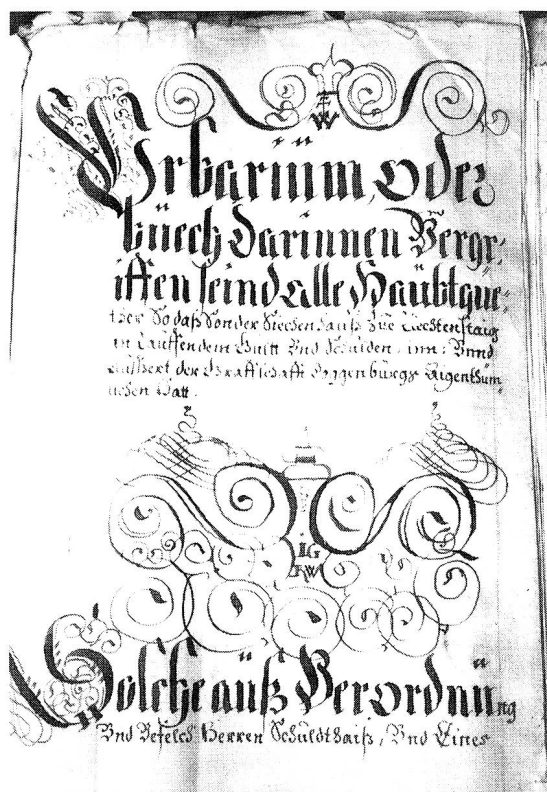 Urbariüm, oder
büech darinnen Vergr-
iffen seind Alle Haübtgüe-
ther So daß Sonder Siechenhauß Zue Liechtenstaig
in Lauffendem Guett Vnd Schulden, inn: Vnnd
Aussert der Graffschafft Toggenburg Aigenthüm-
lichen Hatt.
IG
RW
Solche auß Verordnüng
Vnd Befelch Herren Schuldthaiß, Vnd Eines